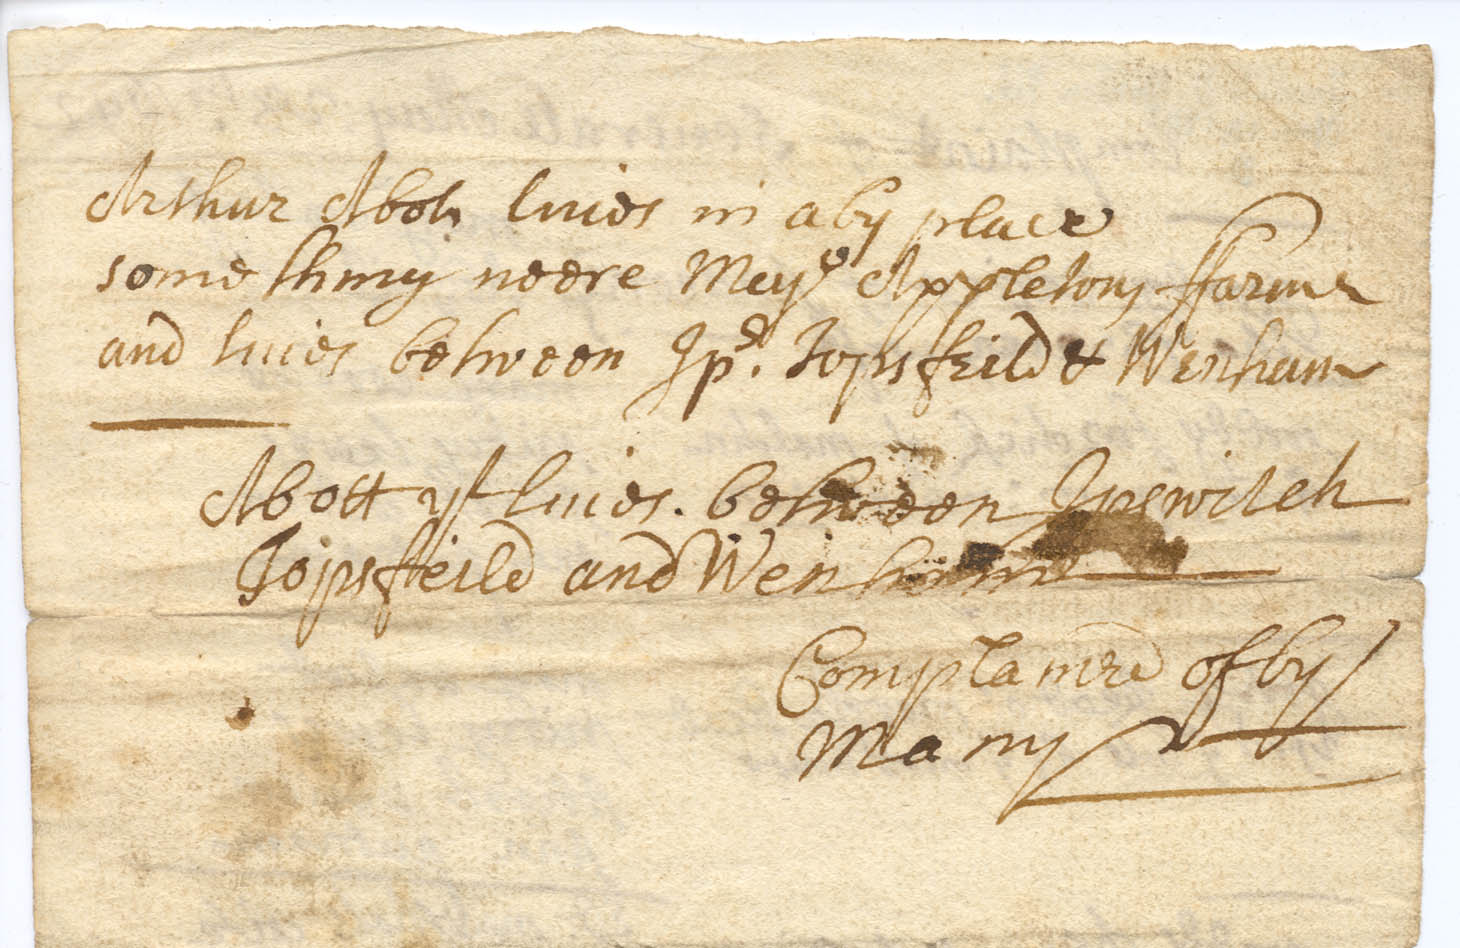 Arthur Abott liues in a by place
some thing neere Mayr Appletons ffarme
and liues between Ips. Topsfeild & Wenham
Abott yt liues. between Ipswitch
Topsfeild and Wenham
Complained of by
Many